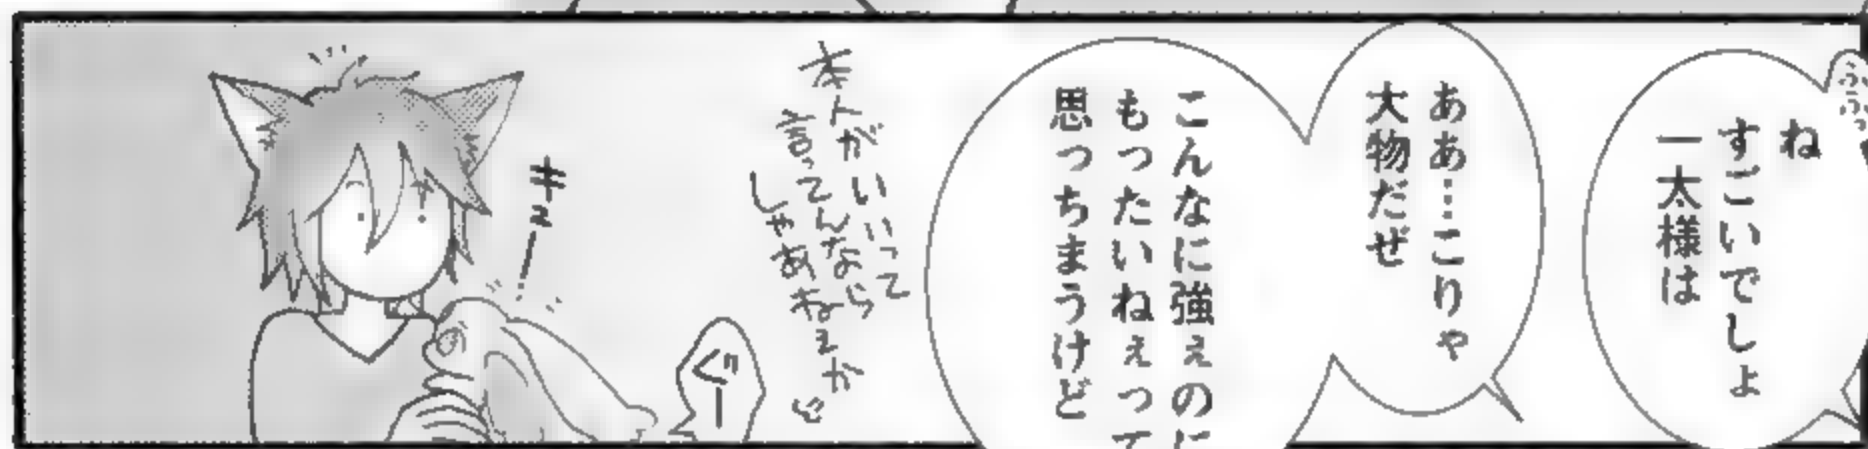 ふふっ
ね
すごいでしょ
一太様は
ああ…こりゃ
大物だぜ
こんなに強ぇのに
もったいねぇって
思っちまうけど
本人がいいって
言ってんなら
しゃあねぇか
キュー
ぐー